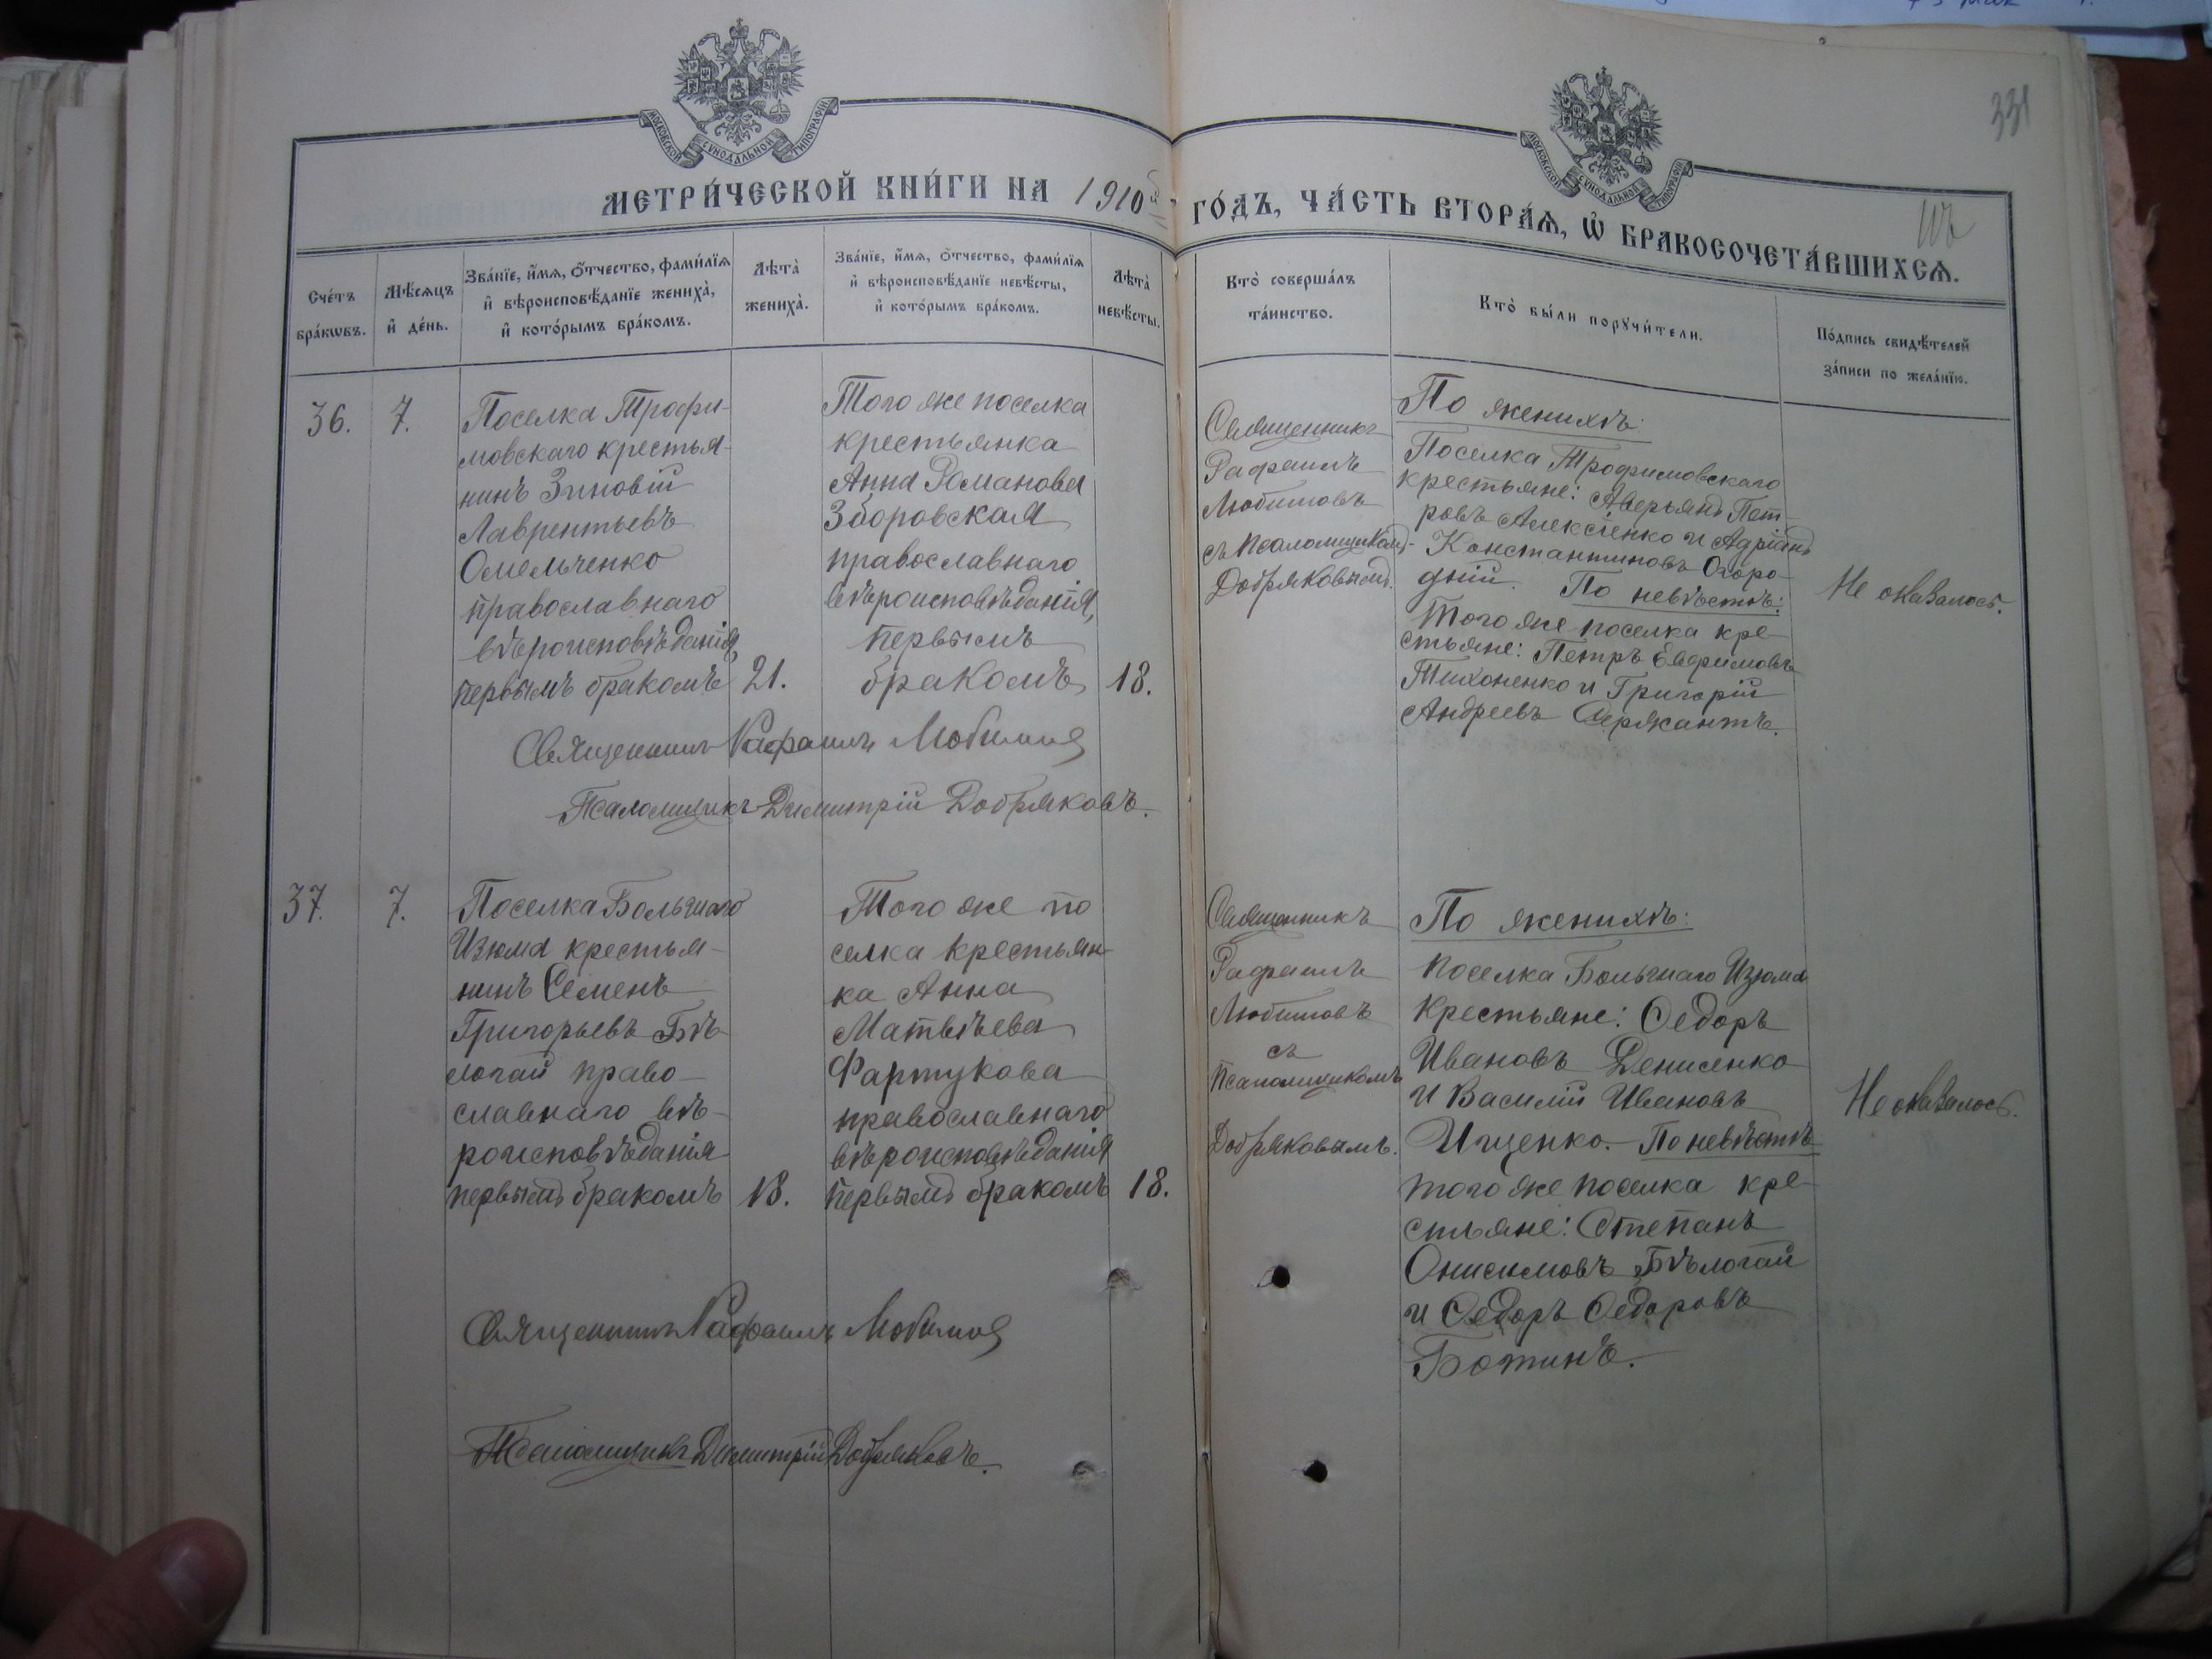 331
МОСКОВСКОЙ СѴНОДАЛЬНОЙ ТИПОГРАФІИ
МОСКОВСКОЙ СѴНОДАЛЬНОЙ ТИПОГРАФІИ
МЕТРИ́ЧЕСКОЙ КНИ́ГИ НА 1910й ГО́ДЪ, ЧА́СТЬ ВТОРА́Ѧ, Ѽ БРАКОСОЧЕТА́ВШИХСѦ.
Сче́тъ
бра́кѡвъ.
Мѣ́сѧцъ
и҆ де́нь.
Зва́нїе, и҆́мѧ, ѻ҆́тчество, фами́лїѧ
и҆ вѣроисповѣ́данїе жениха̀,
и҆ кото́рымъ бра́комъ.
Лѣта̀
жениха̀.
Зва́нїе, и҆́мѧ, ѻ҆́тчество, фами́лїѧ
и҆ вѣроисповѣ́данїе невѣ́сты,
и҆ кото́рымъ бра́комъ.
Лѣта̀
невѣ́сты.
Кто̀ соверша́лъ
та́инство.
Кто̀ бы́ли порꙋчи́тели.
По́дпись свидѣ́телей
за́писи по жела́нїю.
36.
7.
Поселка Трофи-
мовскаго крестья-
нинъ Зиновій
Лаврентьевъ
Омельченко
православнаго
вѣроисповѣданія,
первымъ бракомъ
21.
Того же поселка
крестьянка
Анна Романова
Зборовская
православнаго
вѣроисповѣданія,
первымъ
бракомъ
18.
Священникъ
Рафаилъ
Любимовъ
съ псаломщикомъ
Добряковымъ.
По женихѣ:
Поселка Трофимовскаго
крестьяне: Аверьянъ Пет-
ровъ Алексѣенко и Адріанъ
Константиновъ Огоро-
дній. По невѣстѣ:
Того же поселка кре-
стьяне: Петръ Евфимовъ
Тихоненко и Григорій
Андреевъ Сержантъ.
Не оказалось.
Священникъ Рафаилъ Любимовъ
Псаломщикъ Димитрій Добряковъ.
37.
7.
Поселка Большаго
Изюма крестья-
нинъ Семенъ
Григорьевъ Бѣ-
логай право-
славнаго вѣ-
роисповѣданія
первымъ бракомъ
18.
Того же по
селка крестьян-
ка Анна
Матвѣева
Фартукова
православнаго
вѣроисповѣданія
первымъ бракомъ
18.
Священникъ
Рафаилъ
Любимовъ
съ
псаломщикомъ
Добряковымъ.
По женихѣ:
поселка Большаго Изюма
крестьяне: Ѳедоръ
Ивановъ Денисенко
и Василій Ивановъ
Ищенко. По невѣстѣ
того же поселка кре-
стьяне: Степанъ
Онисимовъ Бѣлогай
и Ѳедоръ Ѳедоровъ
Ботинъ.
Не оказалось.
Священникъ Рафаилъ Любимовъ
Псаломщикъ Димитрій Добряковъ.